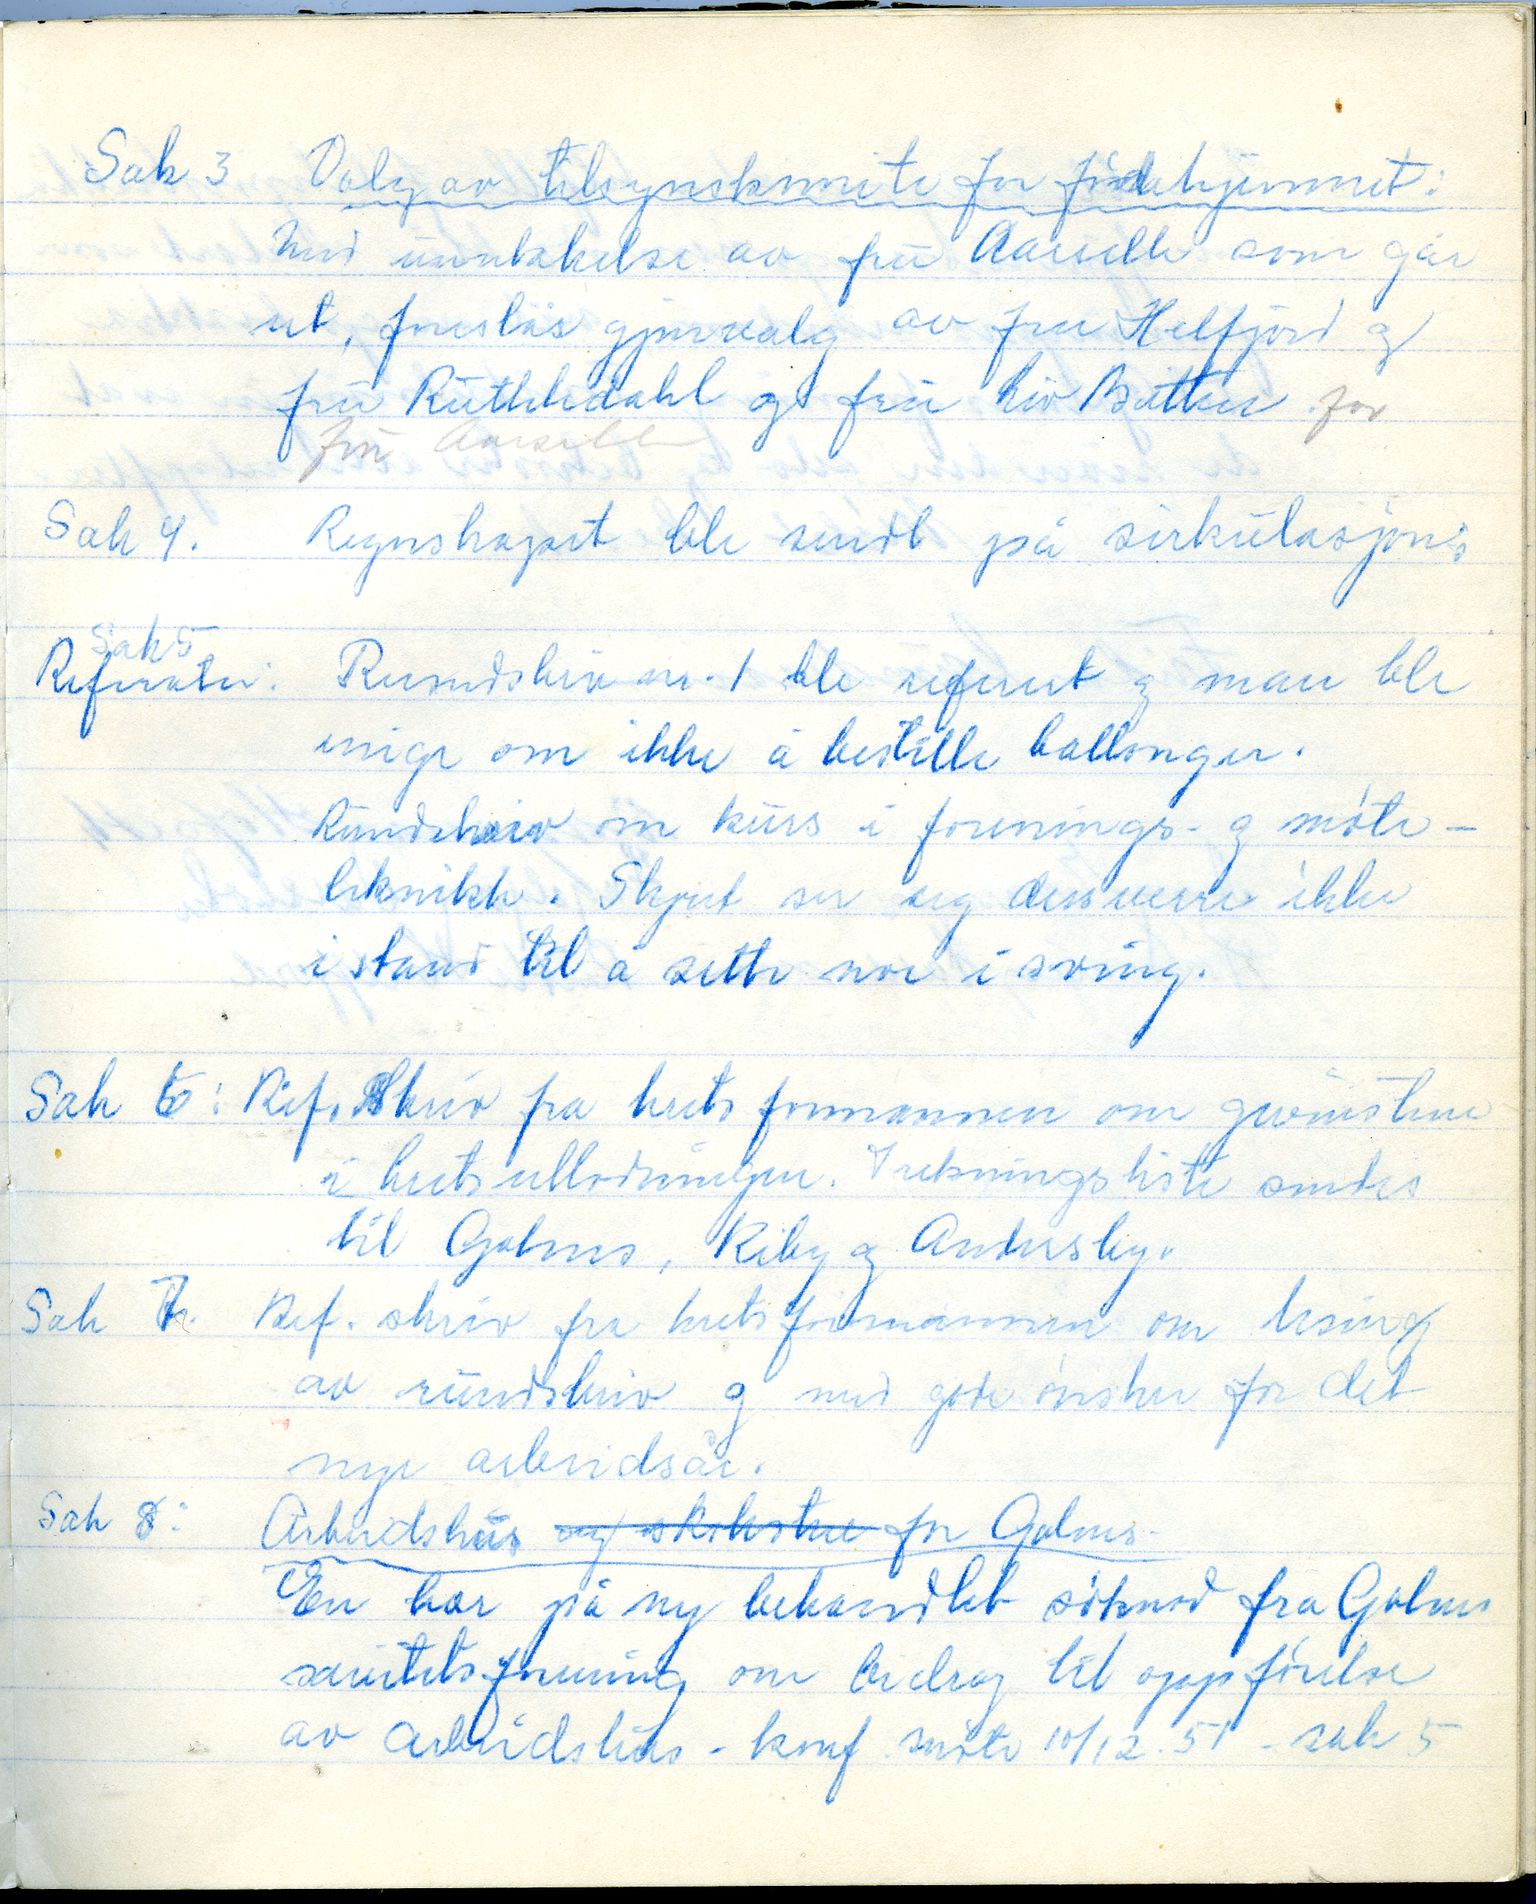 Sak 3 Valg av tilsynskomite for födehjemmet:
Med unntakelse av frü Aarseth som går
ut, foreslås gjenvalg av frü Helfjord og
frü Rüthledahl og frü Liv Batter for
frü Aarseth
Sak 4. Regnskapet ble sendt på sirkülasjon:
Sak 5
Referater: Rundskriv nr. 1 ble referert og man ble
enige om ikke å bestille ballonger.
Ründskriv om kürs i forenings- og möte-
teknikk. Styret ser seg dessverre ikke
i stand til å sette noe i sving.
Sak 6: Ref. skriv fra kretsformannen om gevinstene
i kretsutlodningen. Trekningsliste sendes
til Golnes, Kiby og Andersby.
Sak 7. Ref. skriv fra kretsformannen om lesing
av ründskriv og med gode ønsker for det
nye arbeidsår.
Sak 8: Arbeidshüs og for Golnes.
En har på ny behandlet söknad fra Golnes
sanitetsforening om bidrag til oppförelse
av arbeidshüs - konf. möte 10/12.51 - sak 5